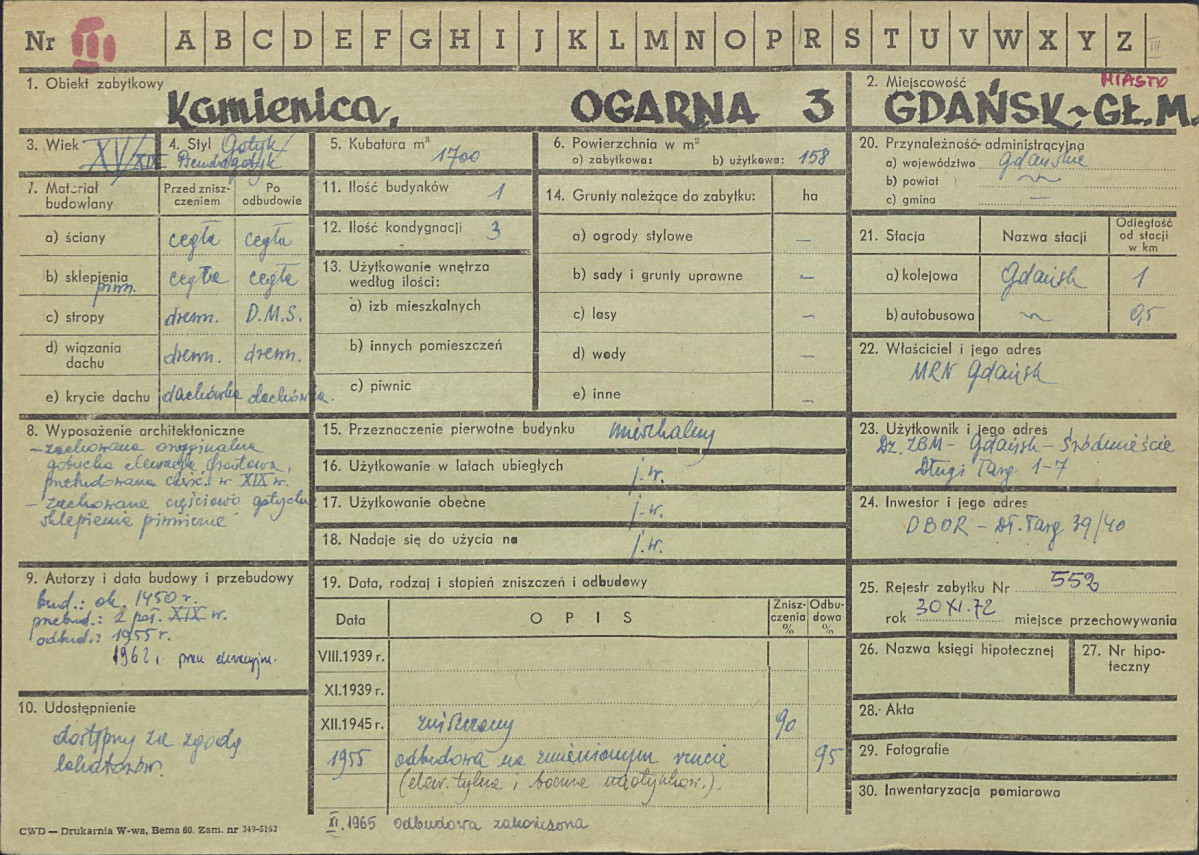 Nr III A B C D E F G H I J K L M N O P R S T U V W X Y Z III
1. Obiekt zabytkowy
Kamienica, OGARNA 3
2. Miejscowość MIASTO
GDAŃSK-GŁ.M.
3. Wiek XV/XIX
4. Styl Gotyk/
Pseudogotyk
5. Kubatura m³ 1700
6. Powierzchnia w m²
a) zabytkowa: b) użytkowa: 158
20. Przynależność administracyjna
a) województwo gdańskie
b) powiat
c) gmina —
7. Materiał budowlany
Przed zniszczeniem
Po odbudowie
a) ściany cegła cegła
b) sklepienia piwn. cegła cegła
c) stropy drewn. D.M.S.
d) wiązania dachu drewn. drewn.
e) krycie dachu dachówka dachówka.
11. Ilość budynków 1
12. Ilość kondygnacji 3
13. Użytkowanie wnętrza
według ilości:
a) izb mieszkalnych
b) innych pomieszczeń
c) piwnic
14. Grunty należące do zabytku: ha
a) ogrody stylowe —
b) sady i grunty uprawne —
c) lasy —
d) wody —
e) inne —
21. Stacja Nazwa stacji Odległość od stacji w km
a) kolejowa Gdańsk 1
b) autobusowa 0,5
22. Właściciel i jego adres
MRN Gdańsk
8. Wyposażenie architektoniczne
- zachowana oryginalna
gotycka elewacja frontowa,
przebudowana częśc. w XIX w.
- zachowane częściowo gotyckie
sklepienia piwniczne
15. Przeznaczenie pierwotne budynku mieszkalny
16. Użytkowanie w latach ubiegłych j.w.
17. Użytkowanie obecne j.w.
18. Nadaje się do użycia na j.w.
23. Użytkownik i jego adres
Dz. ZBM - Gdańsk - Śródmieście
Długi Targ 1-7
24. Inwestor i jego adres
DBOR - Dł. Targ 39/40
9. Autorzy i data budowy i przebudowy
bud.: ok. 1450 r.
przebud.: 2 poł. XIX w.
odbud.: 1955 r.
1962,
19. Data, rodzaj i stopień zniszczeń i odbudowy
Data OPIS Zniszczenia % Odbudowa %
VIII.1939 r.
XI.1939 r.
XII.1945 r. zniszczony 90
1955 odbudowa na zmienionym rzucie 95
(elew. tylna i boczna
XI.1965 odbudowa zakończona
25. Rejestr zabytku Nr 552
rok 30 XI.72 miejsce przechowywania
26. Nazwa księgi hipotecznej
27. Nr hipoteczny
28. Akta
29. Fotografie
30. Inwentaryzacja pomiarowa
10. Udostępnienie
dostępny za zgodą
lokatorów.
CWD — Drukarnia W-wa, Bema 60. Zam. nr 349-5162